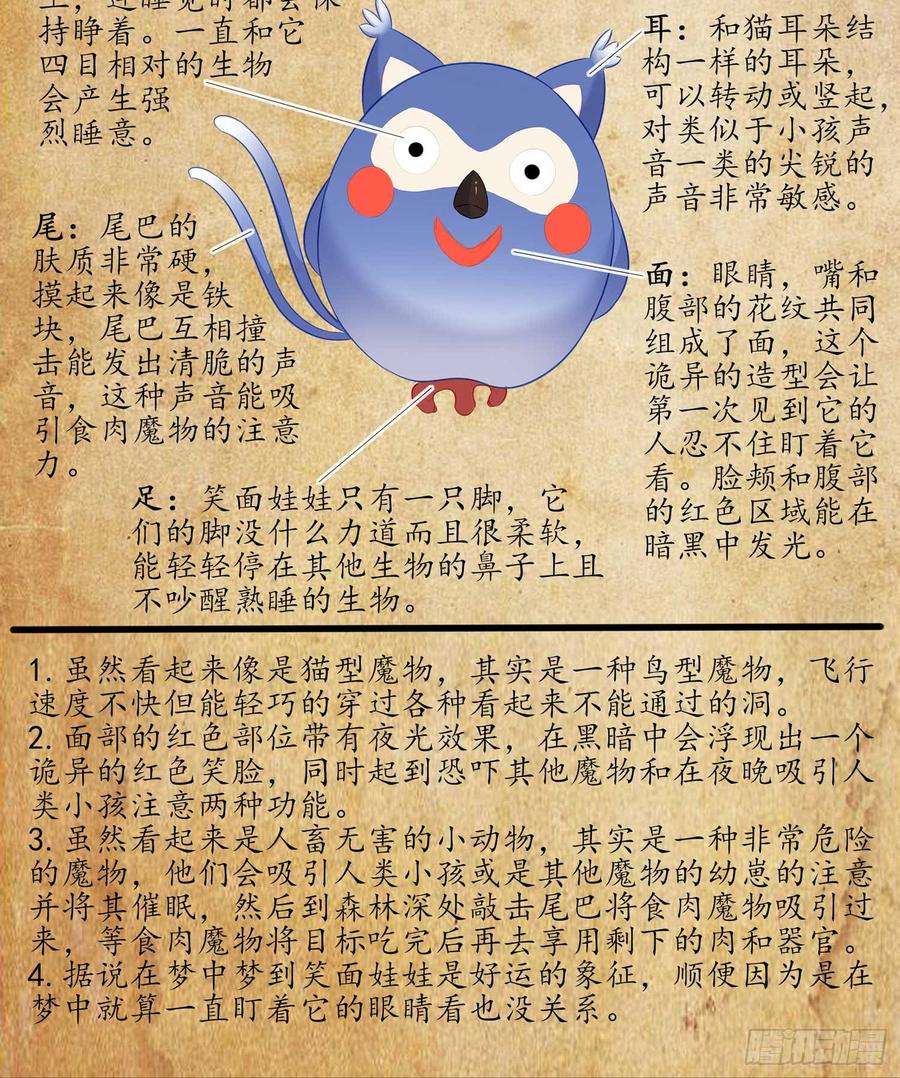 持睁着。一直和它
四目相对的生物
会产生强
烈睡意。
耳：和猫耳朵结
构一样的耳朵，
可以转动或竖起，
对类似于小孩声
音一类的尖锐的
声音非常敏感。
尾：尾巴的
肤质非常硬，
摸起来像是铁
块，尾巴互相撞
击能发出清脆的声
音，这种声音能吸
引食肉魔物的注意
力。
面：眼睛，嘴和
腹部的花纹共同
组成了面，这个
诡异的造型会让
第一次见到它的
人忍不住盯着它
看。脸颊和腹部
的红色区域能在
暗黑中发光。
足：笑面娃娃只有一只脚，它
们的脚没什么力道而且很柔软，
能轻轻停在其他生物的鼻子上且
不吵醒熟睡的生物。
1. 虽然看起来像是猫型魔物，其实是一种鸟型魔物，飞行
速度不快但能轻巧的穿过各种看起来不能通过的洞。
2. 面部的红色部位带有夜光效果，在黑暗中会浮现出一个
诡异的红色笑脸，同时起到恐吓其他魔物和在夜晚吸引人
类小孩注意两种功能。
3. 虽然看起来是人畜无害的小动物，其实是一种非常危险
的魔物，他们会吸引人类小孩或是其他魔物的幼崽的注意
并将其催眠，然后到森林深处敲击尾巴将食肉魔物吸引过
来，等食肉魔物将目标吃完后再去享用剩下的肉和器官。
4. 据说在梦中梦到笑面娃娃是好运的象征，顺便因为是在
梦中就算一直盯着它的眼睛看也没关系。
腾讯动漫